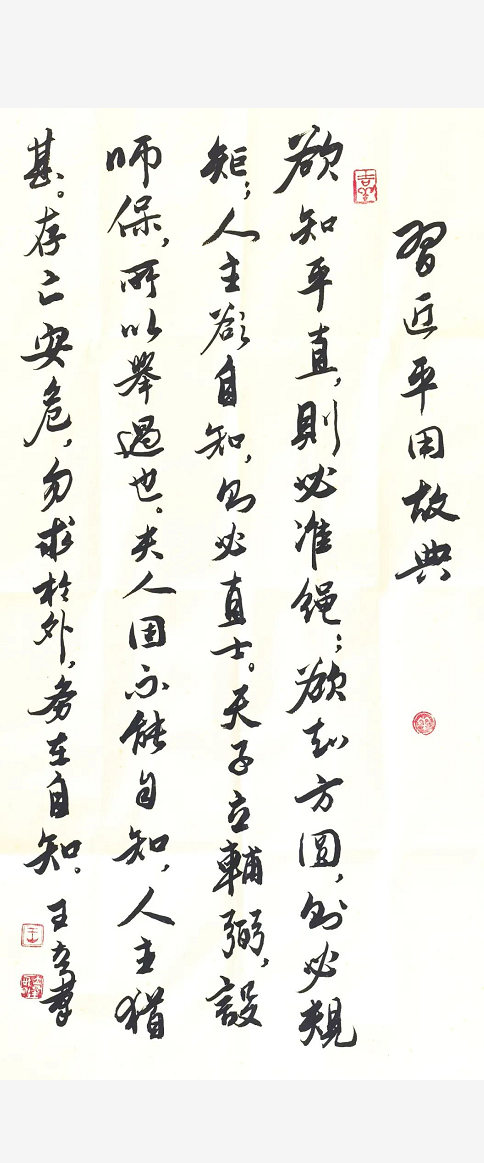 習近平用故典
欲知平直，則必准绳；欲知方圆，则必规
矩；人主欲自知，则必直士。天子立輔弼，設
师保，所以举過也。夫人固不能自知，人主猶
甚。存亡安危，勿求於外，务在自知。王